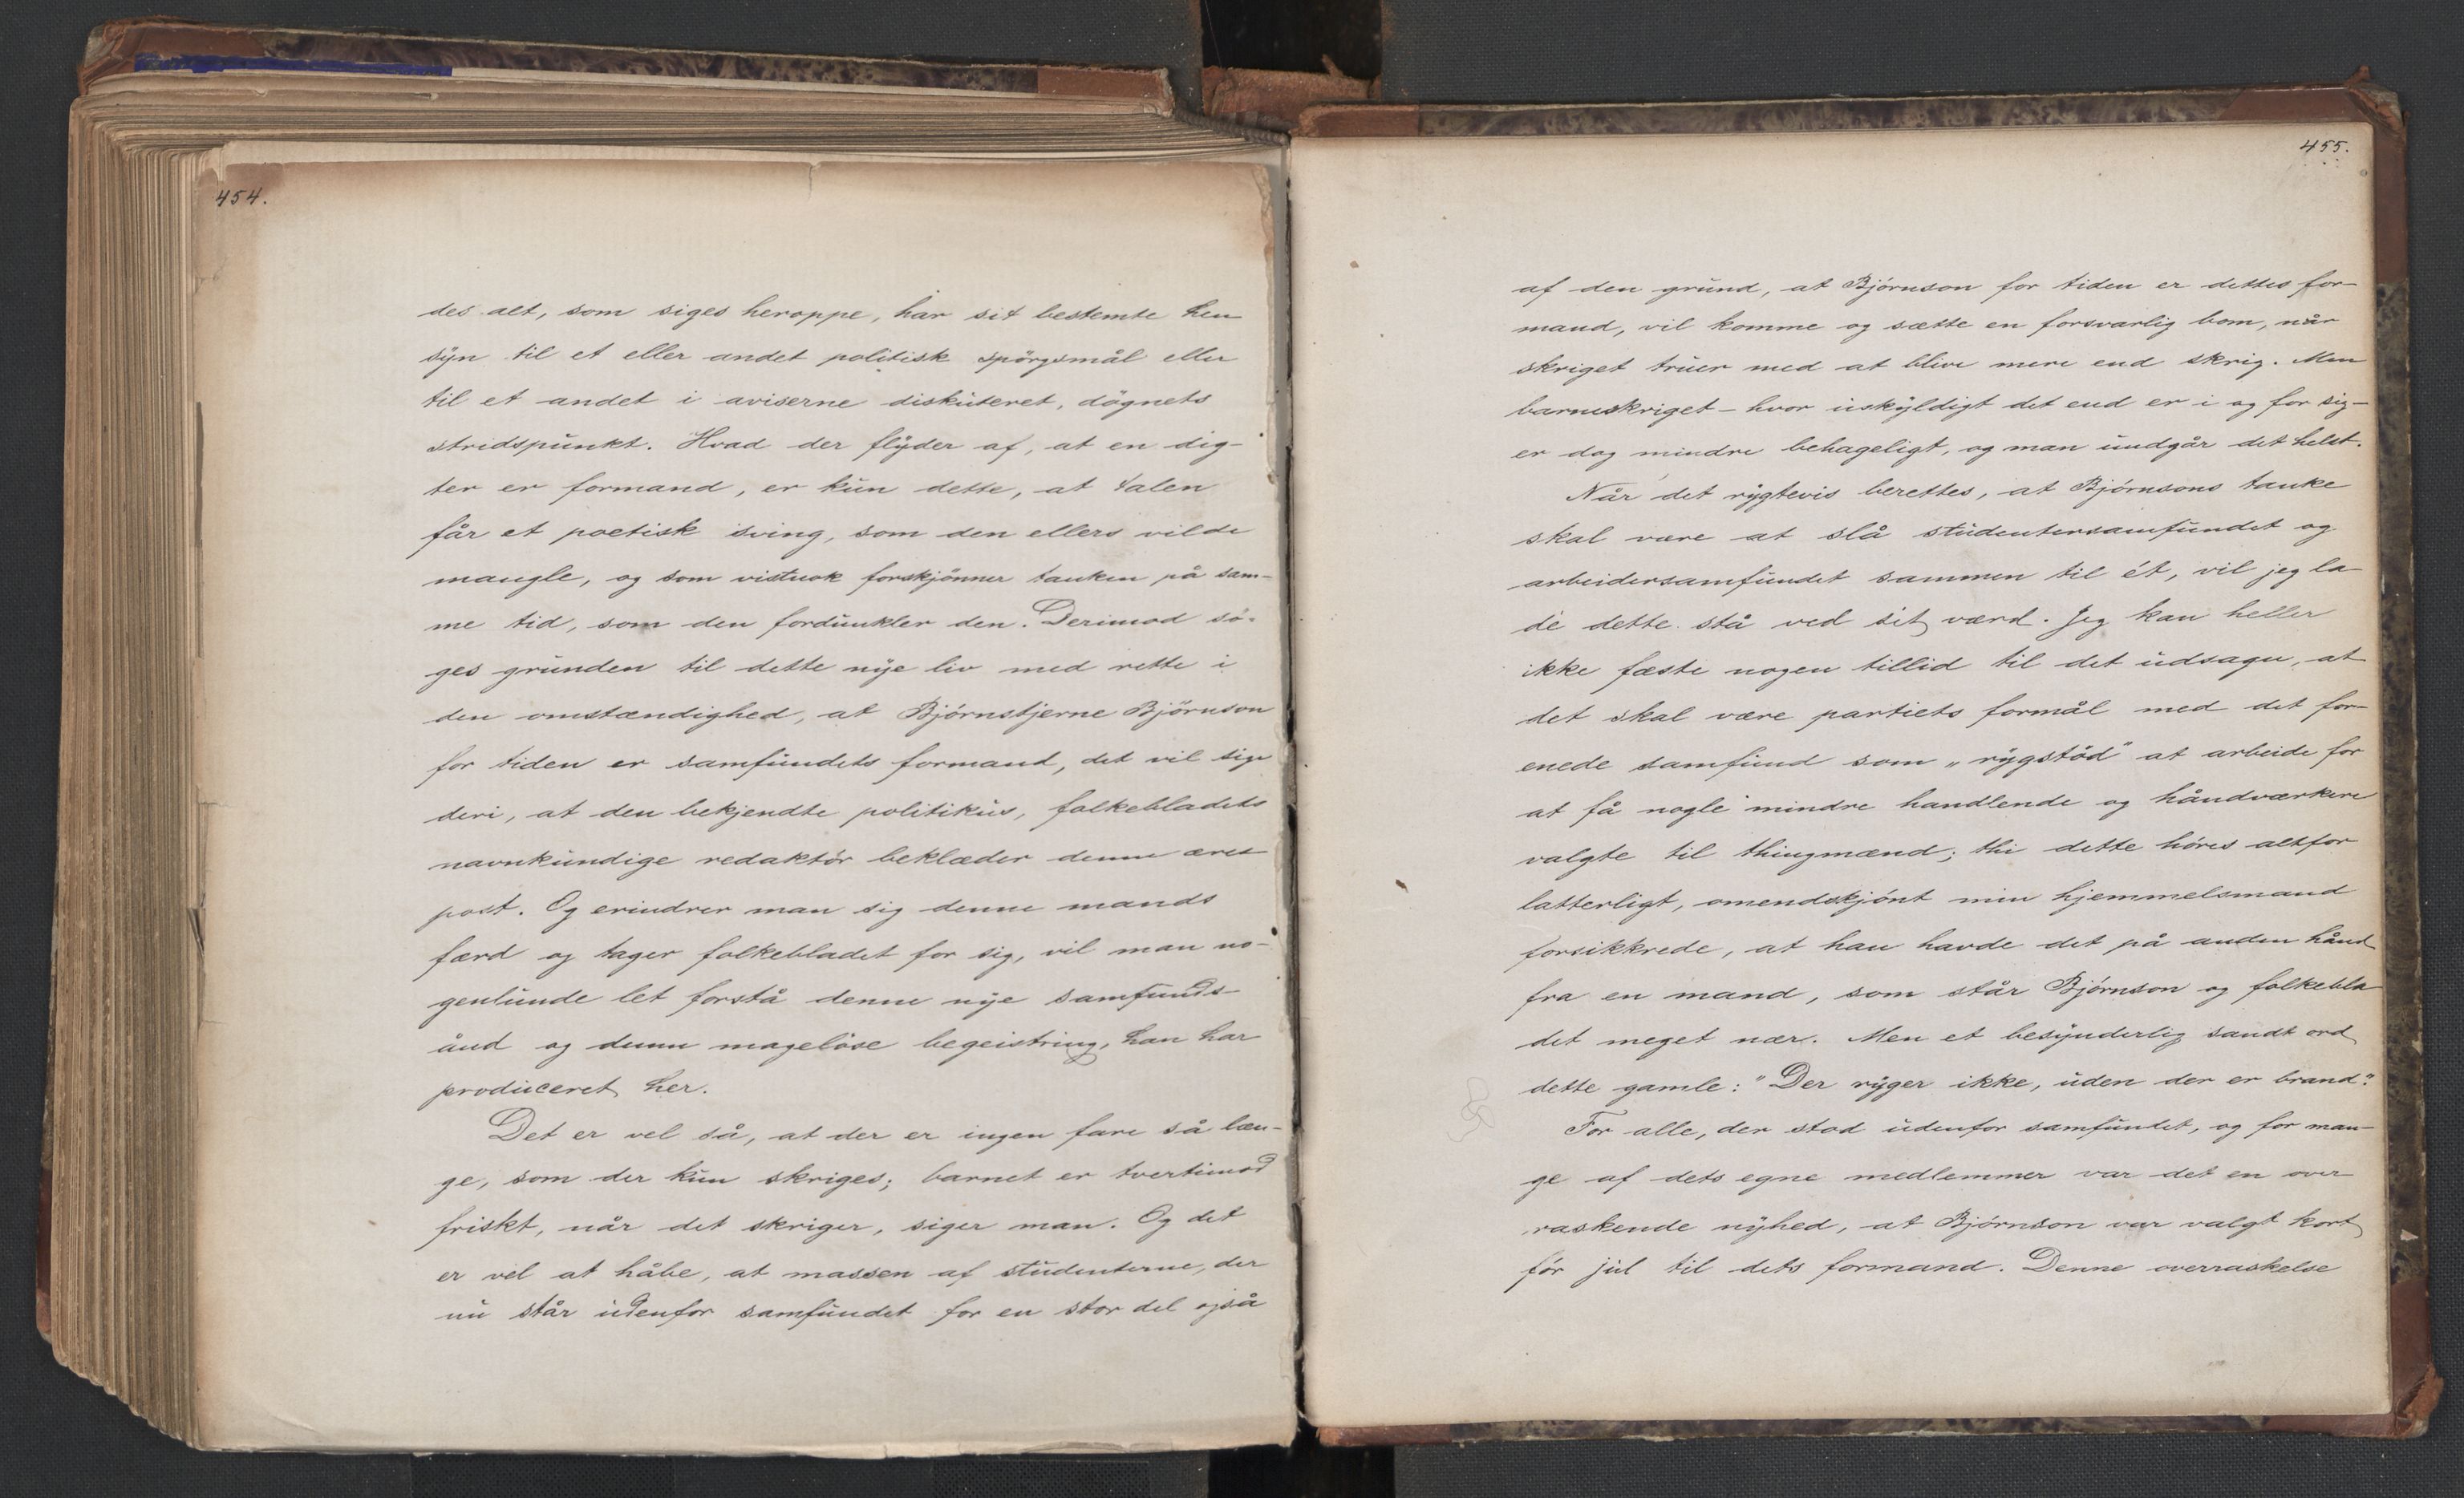 454.
des alt, som siges heroppe, har sit bestemte hen
syn til et eller andet politisk spörgsmål eller
til et andet i aviserne diskuteret, dögnets
stridspunkt. Hvad der flyder af, at en dig-
ter er formand, er kun dette, at talen
får et poetisk sving, som den ellers vilde
mangle, og som vistnok forskjönner tanken på sam-
me tid, som den fordunkler den. Derimod sö-
ges grunden til dette nye liv med rette i
den omstændighed, at Björnstjerne Björnson
for tiden er samfundets formand, det vil sige
deri, at den bekjendte politikus, folkebladets
navnkundige redaktör beklæder denne æres
post. Og erindrer man sig denne mands
færd og tager folkebladet for sig, vil man no-
genlunde let forstå denne nye samfunds-
ånd og denne magelöse begeistring, han har
produceret her.
Det er vel så, at der er ingen fare så læn-
ge, som der kun skriges; barnet er tvertimod
friskt, når det skriger, siger man. Og det
er vel at håbe, at massen af studenterne, der
nu står udenfor samfundet for en stor del også
455.
af den grund, at Björnson for tiden er dettes for-
mand, vil komme og sætte en forsvarlig bom, når
skriget truer med at blive mere end skrig. Men
barneskriget - hvor uskyldigt det end er i og for sig -
er dog mindre behageligt, og man undgår det helst.
Når det rygtevis berettes, at Björnsons tanke
skal være at slå studentersamfundet og
arbeidersamfundet sammen til ét, vil jeg la-
de dette stå ved sit værd. Jeg kan heller
ikke fæste nogen tillid til det udsagn, at
det skal være partiets formål med det for-
enede samfund som „rygstöd" at arbeide for
at få nogle mindre handlende og håndværkere
valgte til thingmænd; thi dette höres altfor
latterligt, omendskjönt min hjemmelsmand
forsikkrede, at han havde det på anden hånd
fra en mand, som står Björnson og folkebla
det meget nær. Men et besynderlig sandt ord
dette gamle: "Der ryger ikke, uden der er brand".
For alle, der stod udenfor samfundet, og for man-
ge af dets egne medlemmer var det en over
raskende nyhed, at Björnson var valgt kort
för jul til dets formand. Denne overraskelse